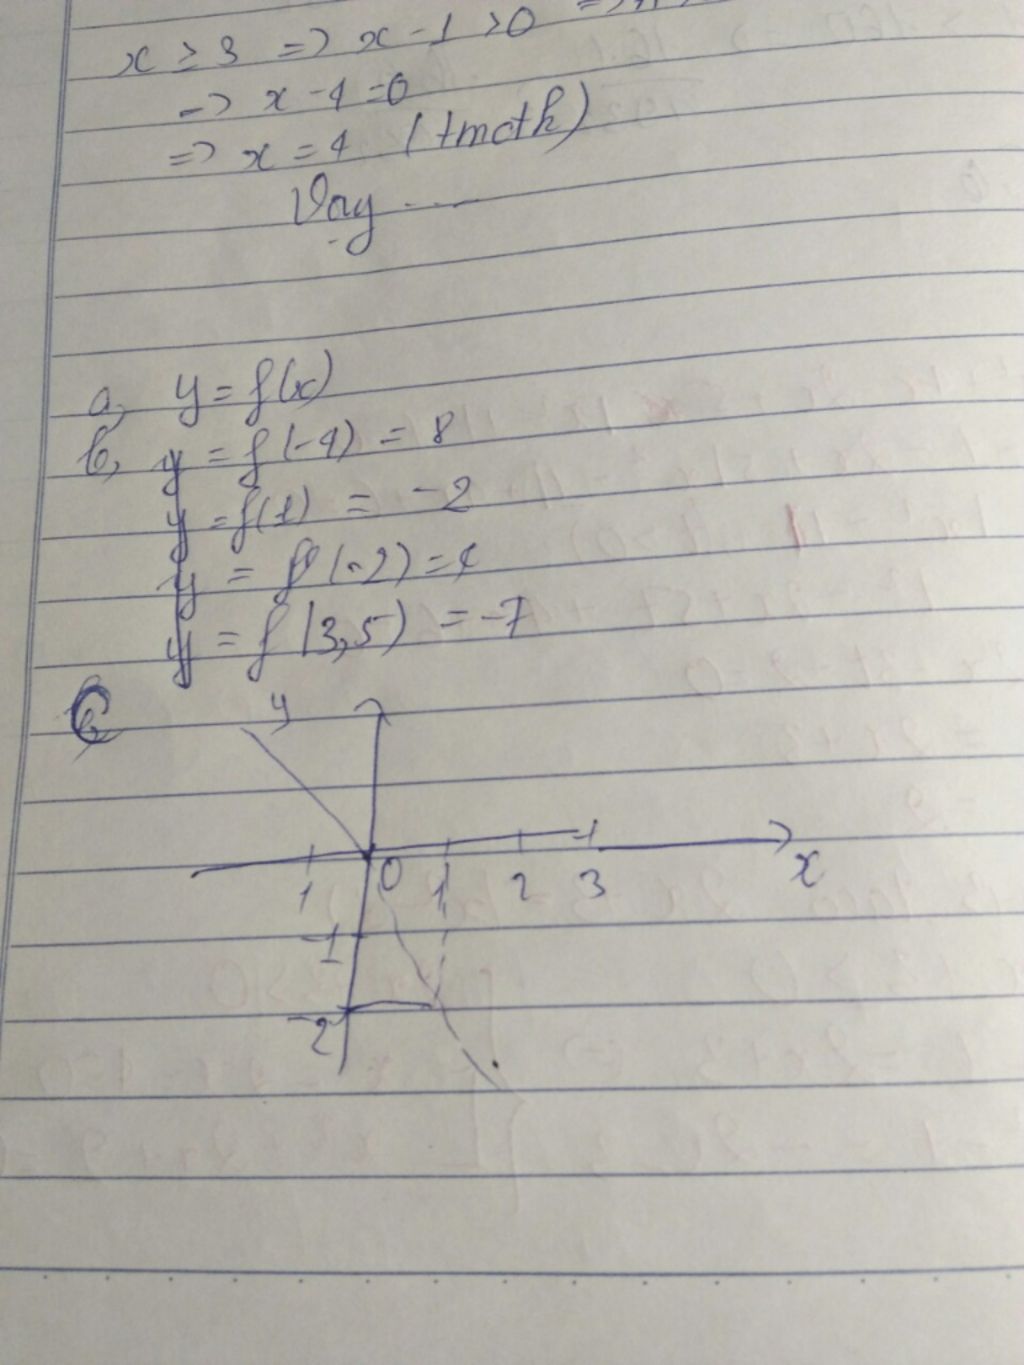 x ≥ 3 => x - 1 > 0 =>
=> x - 4 = 0
=> x = 4 (tmđk)
Vậy ....
a, y = f(x)
b, y = f(-4) = 8
y = f(1) = -2
y = f(-2) = 4
y = f(3,5) = -7
C
y
1 0 1 2 3 x
-1
-2